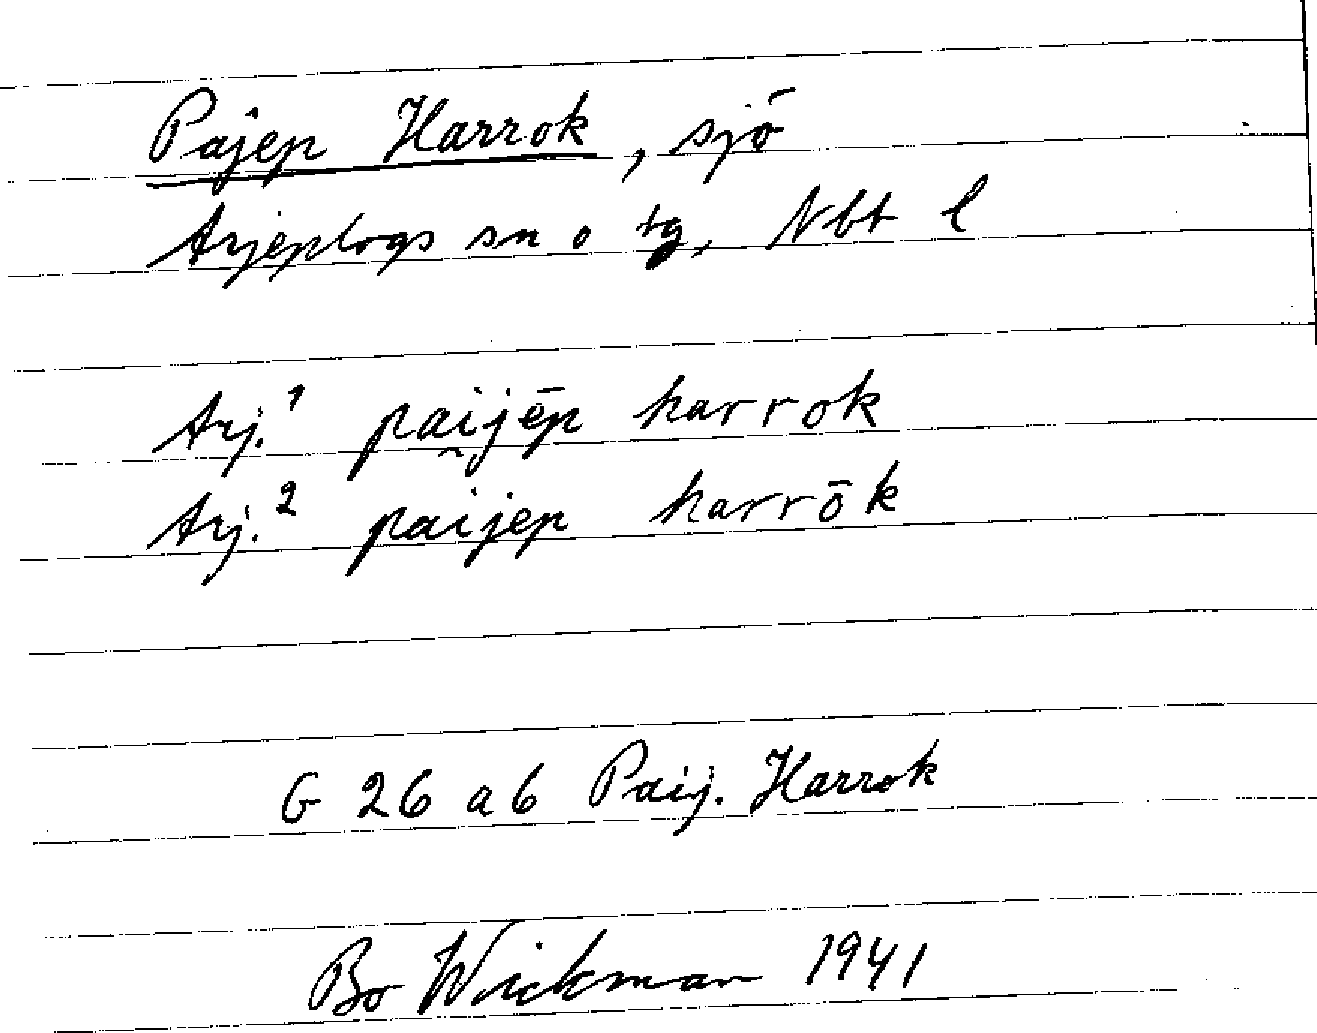 Pajep Harrok, sjö
Arjeplogs sn o tg, Nbt l
Arj.¹ paijēp harrok
Arj.² paijep harrōk
G 26 a b Paij. Harrok
Bo Wickman 1941